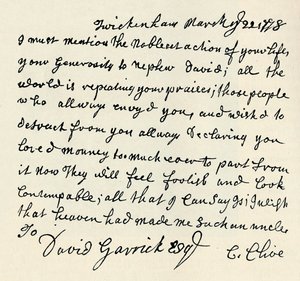 Twickenham March ye 22 1778
I must mention the Noblest action of your life,
your Generosity to nephew David; all the
world is repeating your praises; those people
who allways envyd you, and wishd to
detract from you allways Declaring you
loved mouney too much ever to part from
it now They will feel foolish and look
Contemptable; all that I can Say Is; I wish
that heaven had made me Such an uncle
To
David Garrick Esqr
C. Clive